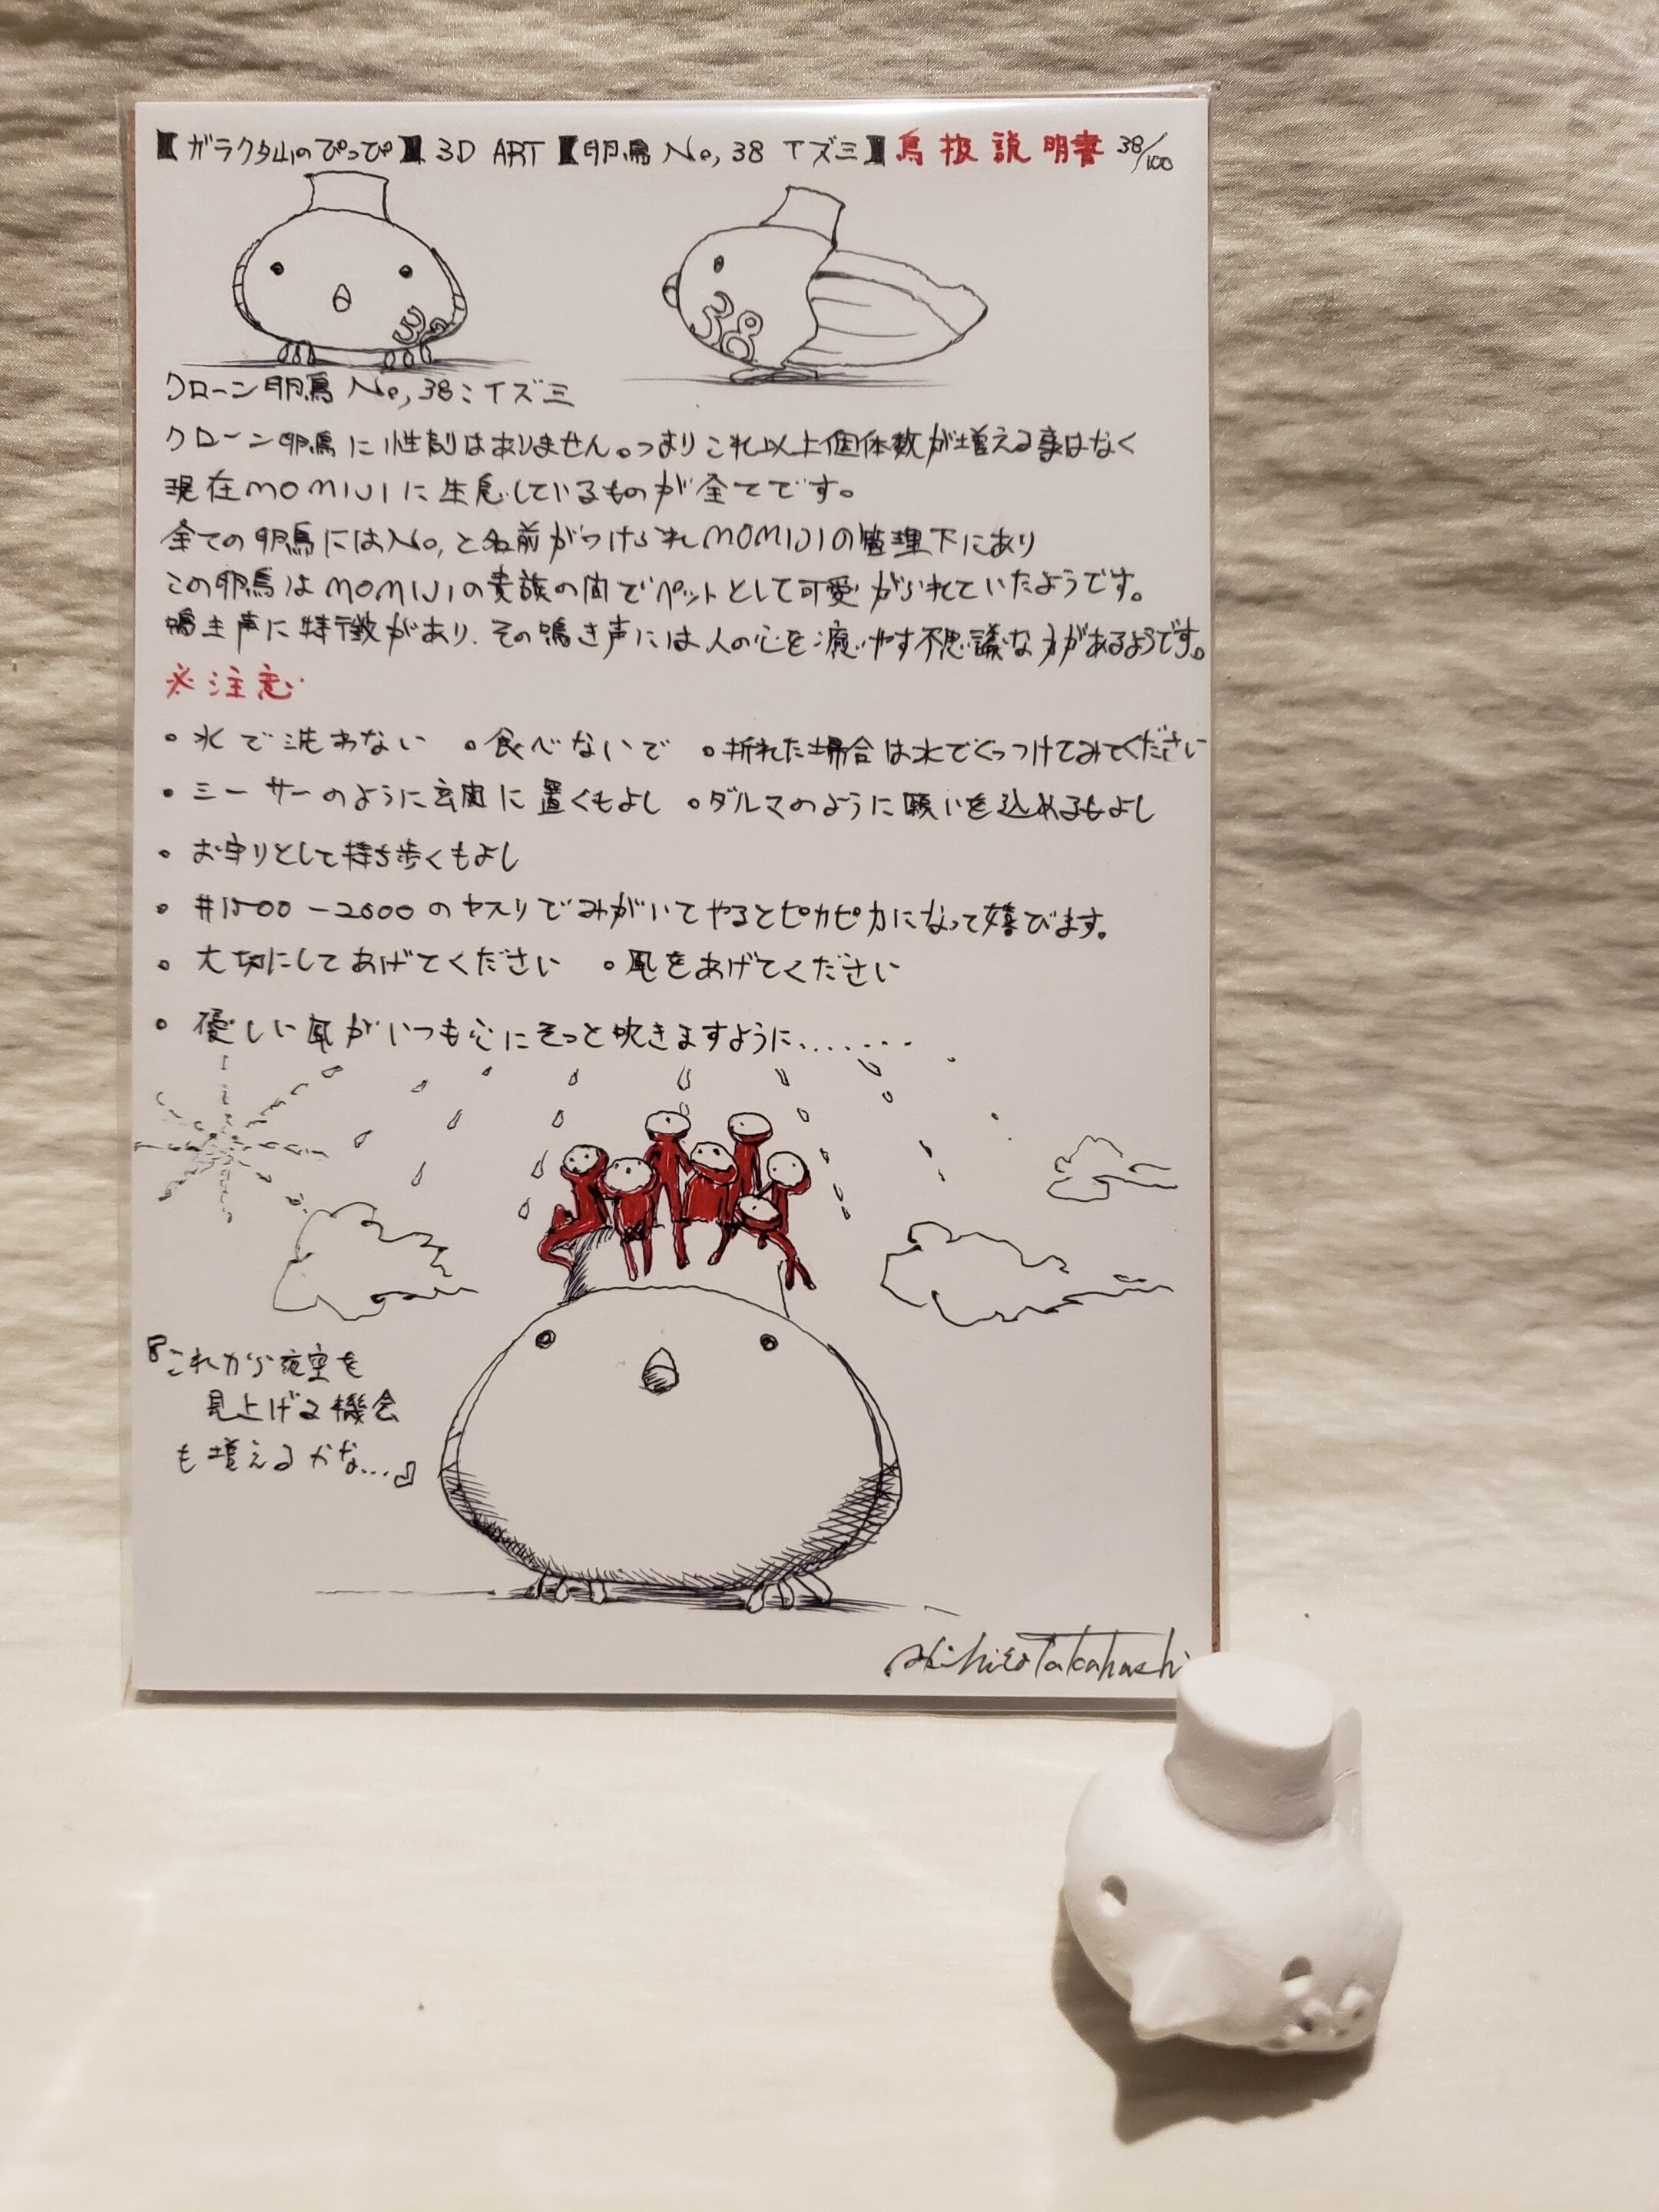 【ガラクタ山のぴっぴ】3D ART【卵鳥No,38 イズミ】鳥扱説明書 38/100
38
38
クローン卵鳥No,38:イズミ
クローン卵鳥に性別はありません。つまりこれ以上個体数が増える事はなく
現在MOMIJIに生息しているものが全てです。
全ての卵鳥にはNo,と名前がつけられMOMIJIの管理下にあり
この卵鳥はMOMIJIの貴族の間でペットとして可愛がられていたようです。
鳴き声に特徴があり、その鳴き声には人の心を癒やす不思議な力があるようです。
※注意
・水で洗わない ・食べないで ・折れた場合は水でくっつけてみてください
・シーサーのように玄関に置くもよし ・ダルマのように願いを込めるもよし
・お守りとして持ち歩くもよし
・#1500-2000のヤスリでみがいてやるとピカピカになって喜びます。
・大切にしてあげてください ・風をあげてください
・優しい風がいつも心にそっと吹きますように.......
『これから夜空を
見上げる機会
も増えるかな...』
Akihiro Takahashi